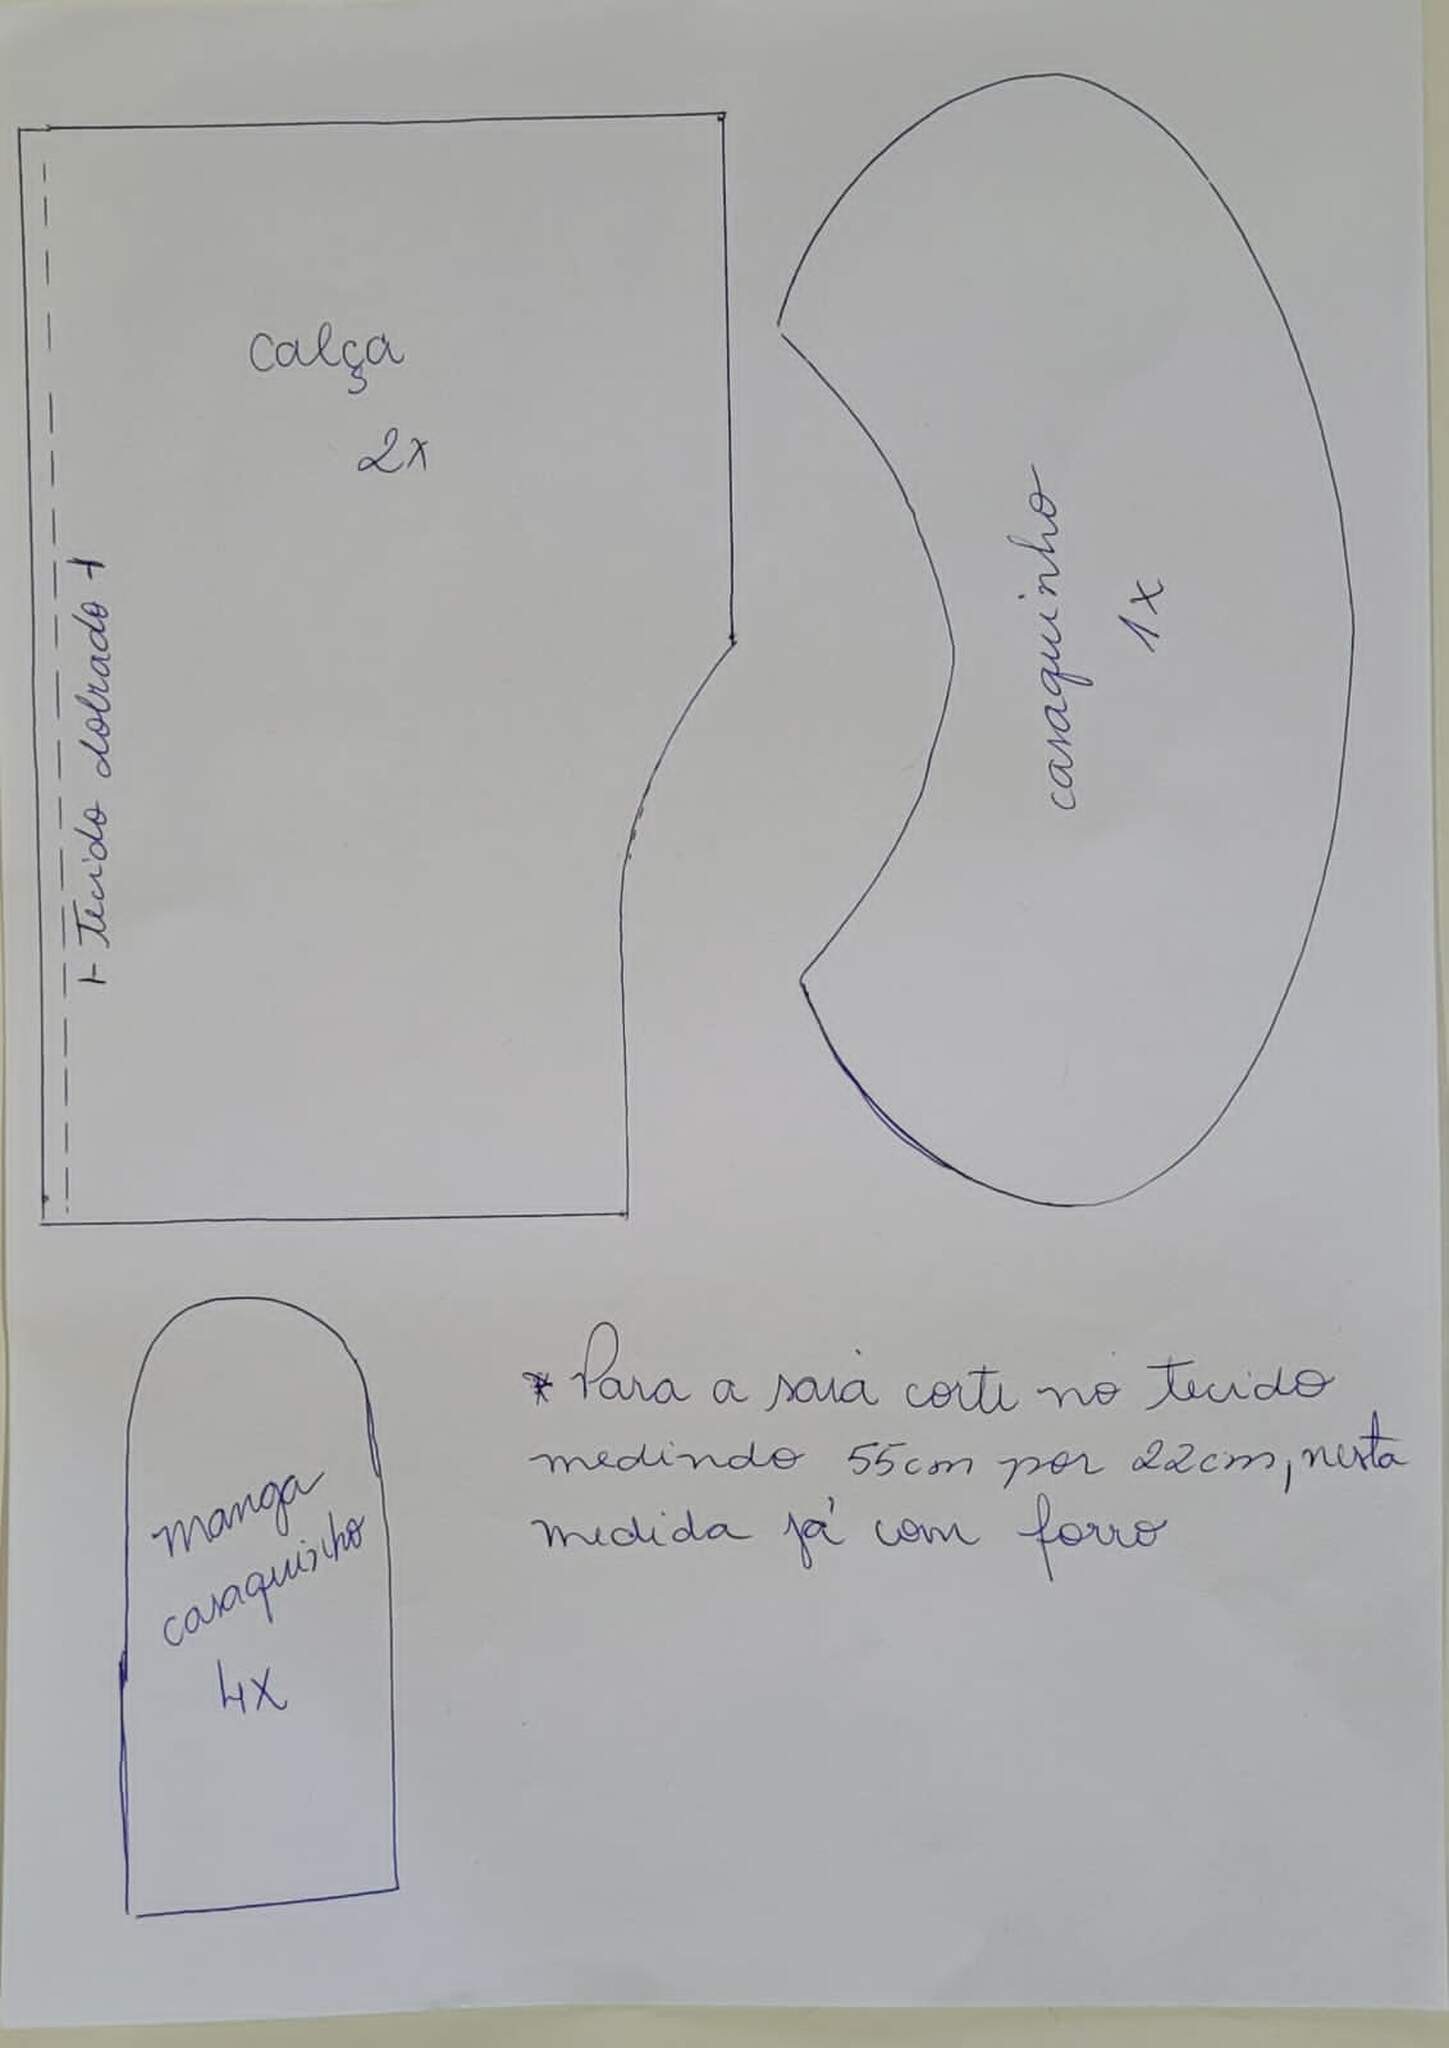 calça
2x
Tecido dobrado
casaquinho
1x
manga
casaquinho
4x
* Para a saia corte no tecido
medindo 55cm por 22cm, nesta
medida já com forro